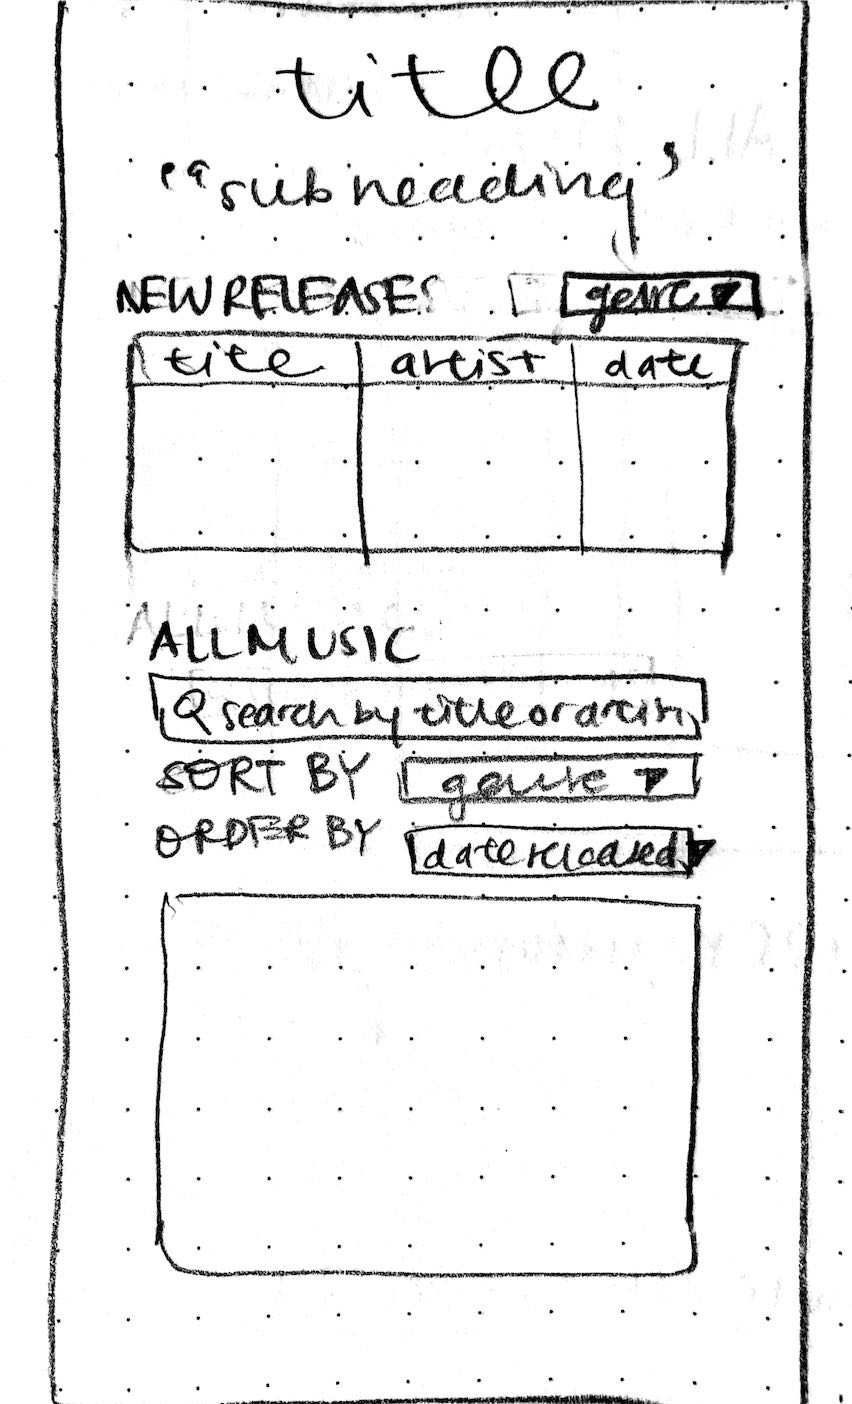 title
"subheading"
NEW RELEASES genre
title artist date
ALL MUSIC
search by title or artist
SORT BY genre
ORDER BY date released